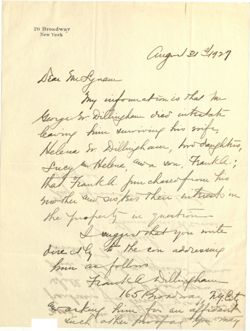 79 Broadway
New York
August 31st 1929
Dear Mr Lynam
My information is that Mr
George W Dillingham died intestate
leaving him surviving his wife,
Helena W Dillingham, two daughters,
Lucy Helena and a son, Frank A;
that Frank A purchased from his
mother and sisters their interest in
the property in question
I suggest that you write
directly to the son addressing
him as follows
Frank A Dillingham
165 Broadway NY City
asking him for an affidavit
such other proof as you may